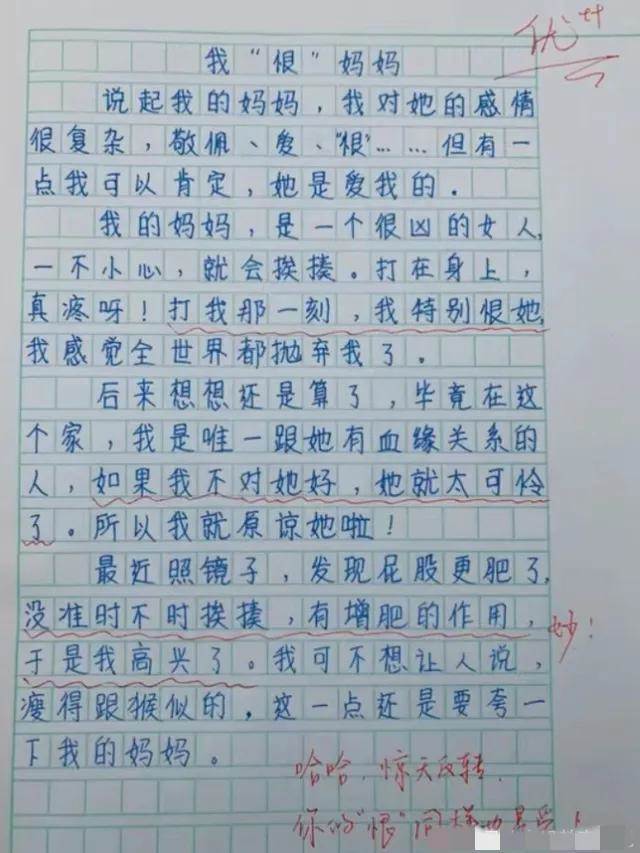 优++
我“恨”妈妈
说起我的妈妈，我对她的感情
很复杂，敬佩、爱、“恨”……但有一
点我可以肯定，她是爱我的．
我的妈妈，是一个很凶的女人，
一不小心，就会挨揍。打在身上，
真疼呀！打我那一刻，我特别恨她
我感觉全世界都抛弃我了。
后来想想还是算了，毕竟在这
个家，我是唯一跟她有血缘关系的
人，如果我不对她好，她就太可怜
了。所以我就原谅她啦！
最近照镜子，发现屁股更肥了，
没准时不时挨揍，有增肥的作用，
妙！
于是我高兴了。我可不想让人说，
瘦得跟猴似的，这一点还是要夸一
下我的妈妈。
哈哈，惊天反转，
你的“恨”同样也是爱